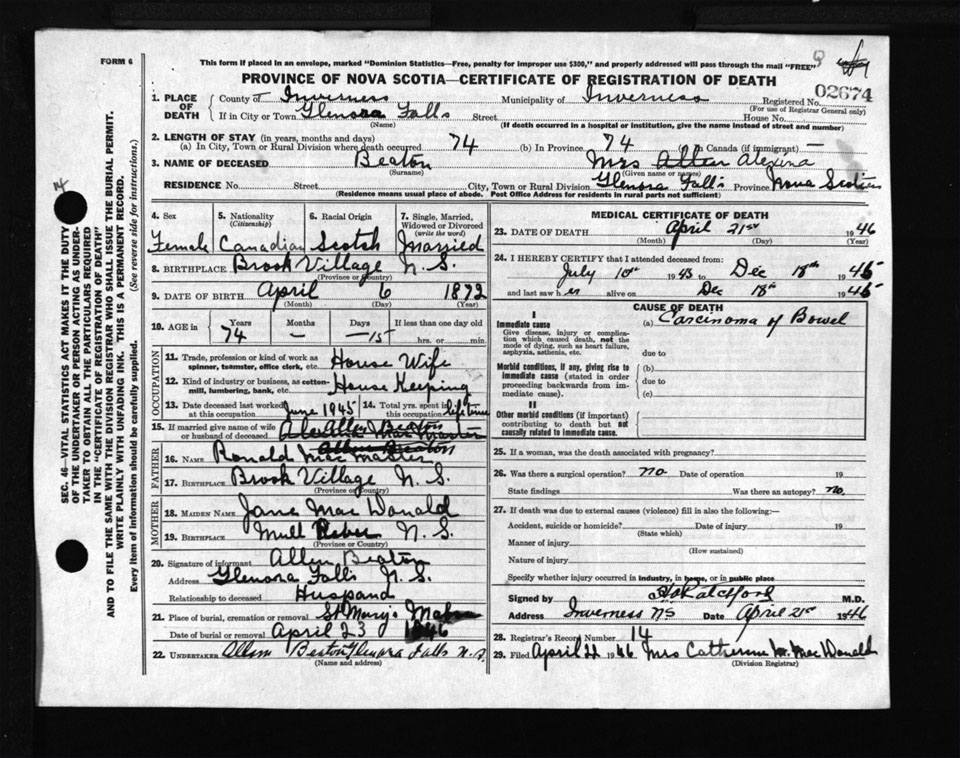 FORM 6
This form if placed in an envelope, marked "Dominion Statistics—Free, penalty for improper use $300," and properly addressed will pass through the mail "FREE"
PROVINCE OF NOVA SCOTIA—CERTIFICATE OF REGISTRATION OF DEATH
02674
1. PLACE OF DEATH County of Inverness Municipality of Inverness Registered No.
(For use of Registrar General only)
If in City or Town Glenora Falls Street House No.
(Name) (If death occurred in a hospital or institution, give the name instead of street and number)
2. LENGTH OF STAY (in years, months and days)
(a) In City, Town or Rural Division where death occurred 74 (b) In Province 74 In Canada (if immigrant) —
3. NAME OF DECEASED Beaton Mrs Allan Alexina
(Surname) (Given name or names)
RESIDENCE No. Street City, Town or Rural Division Glenora Falls Province Nova Scotia
(Residence means usual place of abode. Post Office Address for residents in rural parts not sufficient)
4. Sex Female
5. Nationality (Citizenship) Canadian
6. Racial Origin Scotch
7. Single, Married, Widowed or Divorced (write the word) Married
8. BIRTHPLACE Brook Village N.S.
(Province or Country)
9. DATE OF BIRTH April 6 1872
(Month) (Day) (Year)
10. AGE in Years Months Days If less than one day old
74 — 15 hrs. or min.
OCCUPATION
11. Trade, profession or kind of work as spinner, teamster, office clerk, etc. House Wife
12. Kind of industry or business, as cotton-mill, lumbering, bank, etc. House Keeping
13. Date deceased last worked at this occupation June 1945 14. Total yrs. spent in this occupation lifetime
15. If married give name of wife or husband of deceased Allen Beaton
FATHER
16. NAME Ronald MacMaster
17. BIRTHPLACE Brook Village N.S.
(Province or Country)
MOTHER
18. MAIDEN NAME Jane MacDonald
19. BIRTHPLACE Mull River N.S.
(Province or Country)
20. Signature of informant Allen Beaton
Address Glenora Falls N.S.
Relationship to deceased Husband
21. Place of burial, cremation or removal St Mary's Mabou
Date of burial or removal April 23 1946
22. UNDERTAKER Allan Beaton Glenora Falls N.S.
(Name and address)
MEDICAL CERTIFICATE OF DEATH
23. DATE OF DEATH April 21st 1946
(Month) (Day) (Year)
24. I HEREBY CERTIFY that I attended deceased from:
July 10th 1943 to Dec 18th 1945
and last saw her alive on Dec 18th 1945
CAUSE OF DEATH
I
Immediate cause (a) Carcinoma of Bowel
Give disease, injury or complication which caused death, not the mode of dying, such as heart failure, asphyxia, asthenia, etc.
due to
Morbid conditions, if any, giving rise to immediate cause (stated in order proceeding backwards from immediate cause).
(b)
due to
(c)
II
Other morbid conditions (if important) contributing to death but not causally related to immediate cause.
25. If a woman, was the death associated with pregnancy?
26. Was there a surgical operation? no Date of operation 19
State findings Was there an autopsy? no.
27. If death was due to external causes (violence) fill in also the following:—
Accident, suicide or homicide? Date of injury 19
(State which)
Manner of injury
(How sustained)
Nature of injury
Specify whether injury occurred in industry, in home, or in public place
Signed by M.D.
Address Inverness NS Date April 21st 1946
28. Registrar's Record Number 14
29. Filed April 22 1946 Mrs Catherine M. MacDonald
(Division Registrar)
SEC. 46—VITAL STATISTICS ACT MAKES IT THE DUTY OF THE UNDERTAKER OR PERSON ACTING AS UNDERTAKER TO OBTAIN ALL THE PARTICULARS REQUIRED IN THE "CERTIFICATE OF REGISTRATION OF DEATH" AND TO FILE THE SAME WITH THE DIVISION REGISTRAR WHO SHALL ISSUE THE BURIAL PERMIT.
WRITE PLAINLY WITH UNFADING INK. THIS IS A PERMANENT RECORD.
Every item of information should be carefully supplied. (See reverse side for instructions.)